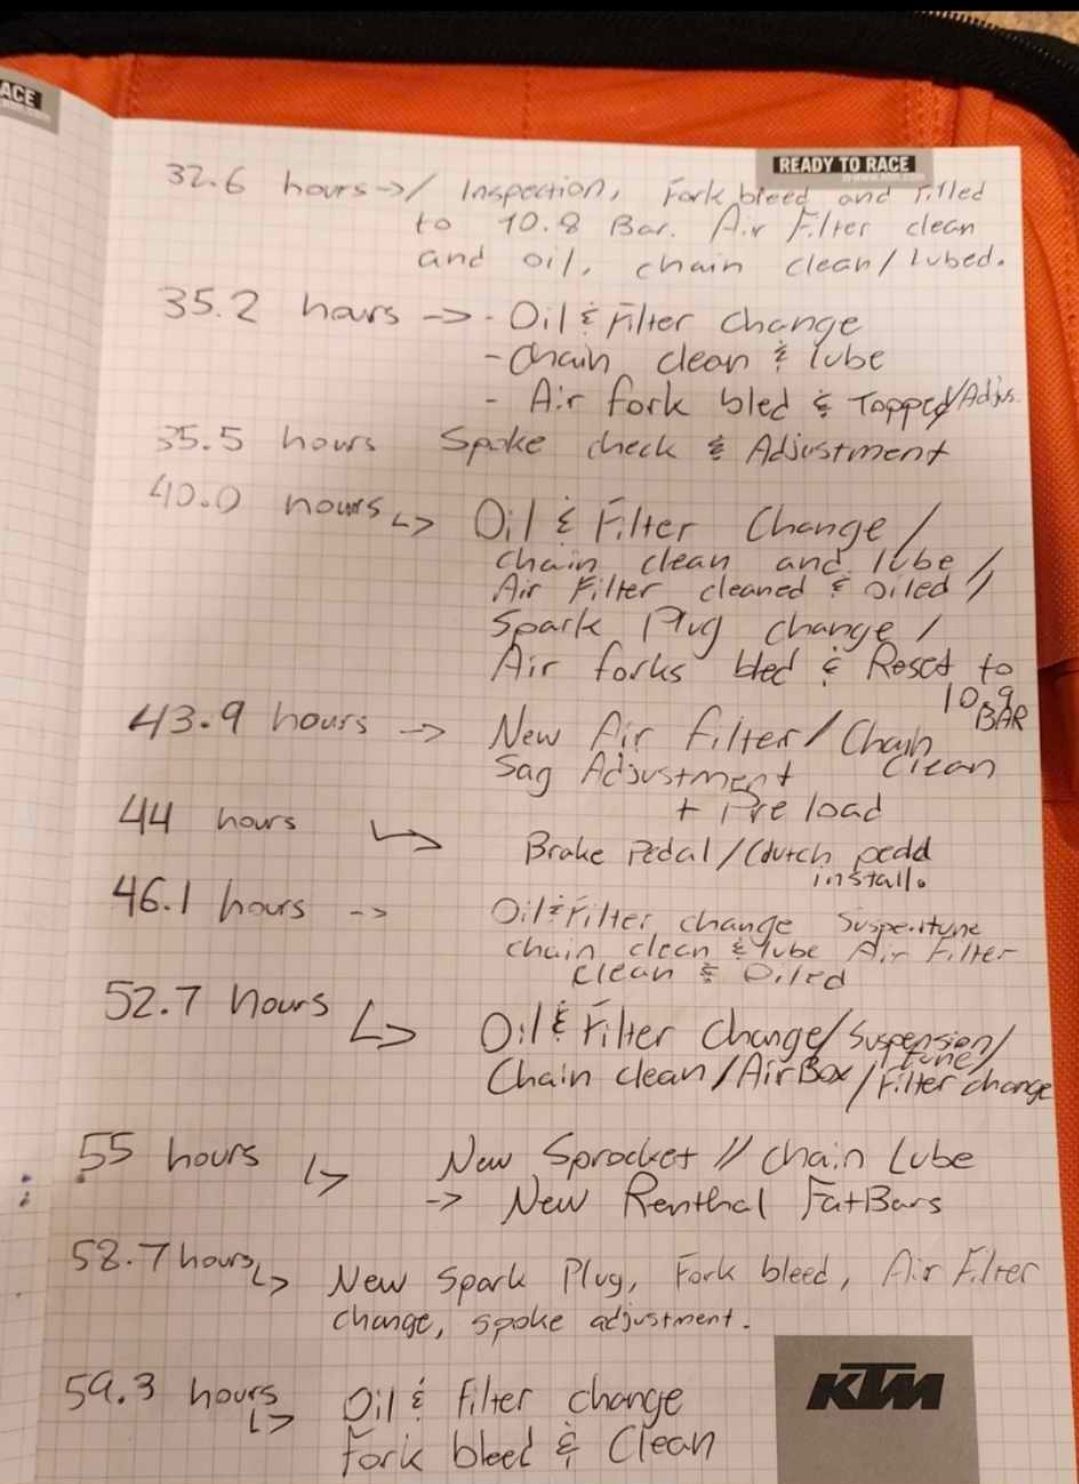 ACE
READY TO RACE
32.6 hours -> / Inspection, Fork bleed and filled
to 10.8 Bar. Air Filter clean
and oil, chain clean/lubed.
35.2 hours -> - Oil & Filter change
- Chain clean & lube
- Air fork bled & Topped/Adjus.
35.5 hours Spoke check & Adjustment
40.0 hours Oil & Filter Change /
chain clean and lube /
Air Filter cleaned & oiled //
Spark Plug change /
Air forks bled & Reset to
10.9
BAR
43.9 hours -> New Air filter / Chain
Clean
Sag Adjustment
+ Pre load
44 hours Brake Pedal / Clutch pedal
install.
46.1 hours -> Oil & Filter change
chain clean & lube Air Filter
clean & Oiled
52.7 hours Oil & Filter Change / Suspension /
tune /
Chain clean / AirBox / Filter change
55 hours New Sprocket // chain Lube
-> New Renthal FatBars
58.7 hours New Spark Plug, Fork bleed, Air Filter
change, spoke adjustment.
59.3 hours Oil & filter change
Fork bleed & Clean
KTM